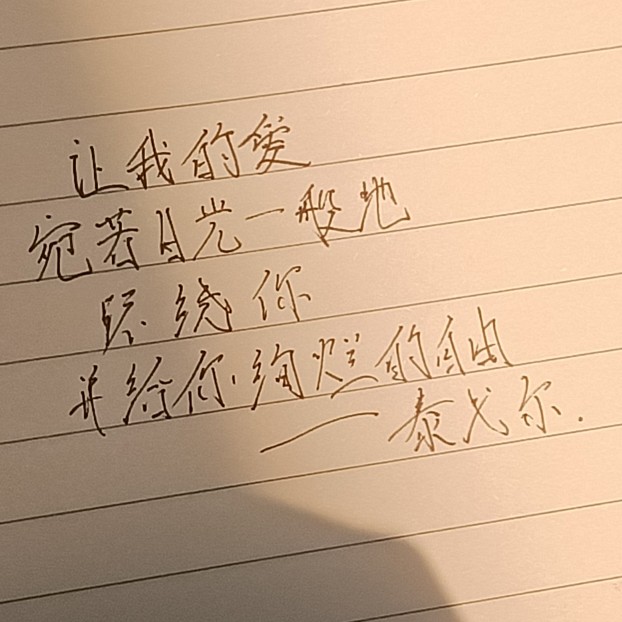 让我的爱
宛若日光一般地
环绕你
并给你绚烂的自由
——泰戈尔.